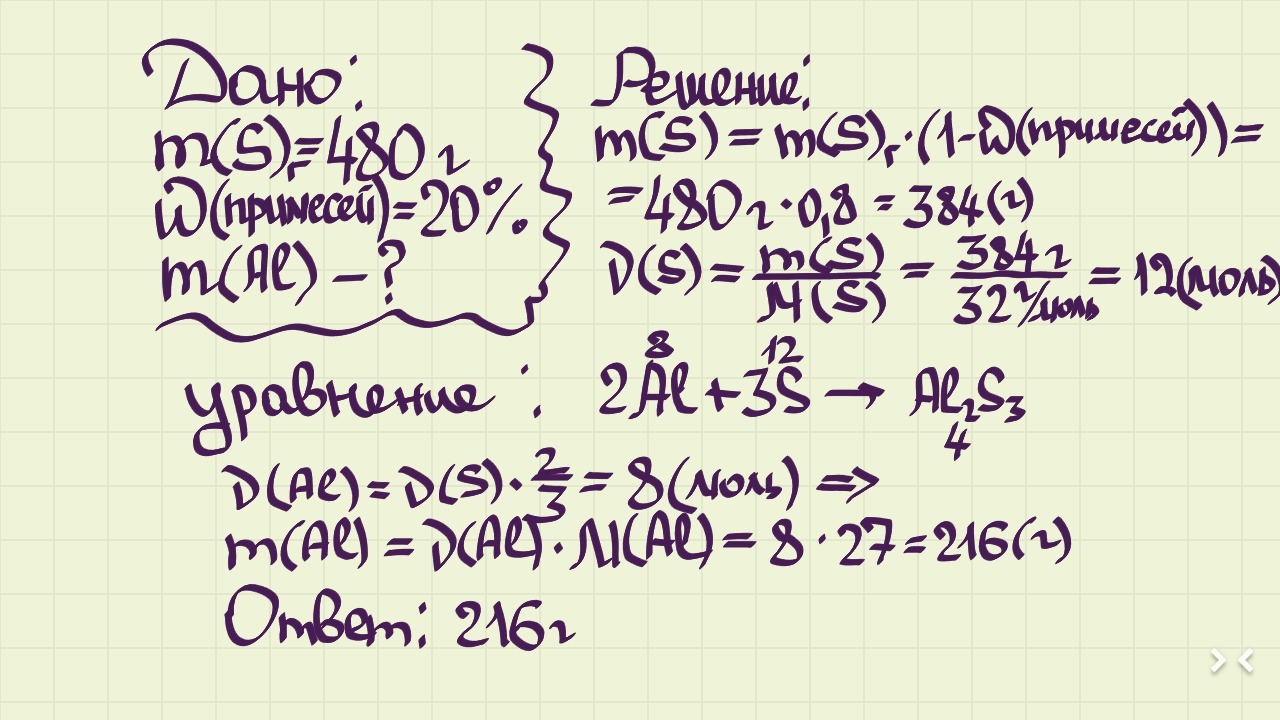 Дано:
m(S)г=480 г
ω(примесей)=20%.
m(Al) – ?
Решение:
m(S) = m(S)г·(1-ω(примесей))=
=480г·0,8 = 384(г)
ν(S) = m(S)/M(S) = 384г/32г/моль = 12(моль)
8 12
уравнение : 2Al+3S → Al₂S₃
4
ν(Al) = ν(S)·2/3 = 8(моль) =>
m(Al) = ν(Al)·M(Al) = 8·27=216(г)
Ответ: 216г